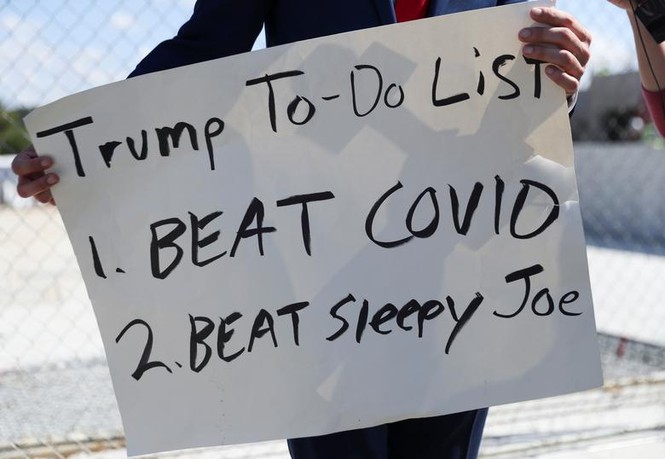 Trump To-Do List
1. BEAT COVID
2. BEAT Sleepy Joe